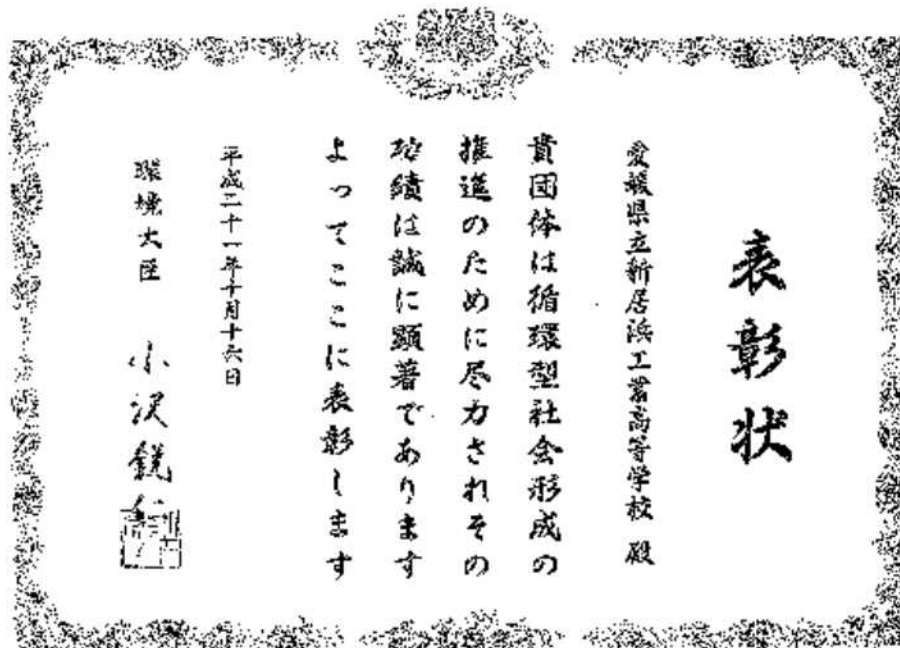 表彰状
愛媛県立新居浜工業高等学校 殿
貴団体は循環型社会形成の
推進のために尽力されその
功績は誠に顕著であります
よってここに表彰します
平成二十一年十月十六日
環境大臣 小沢鋭仁